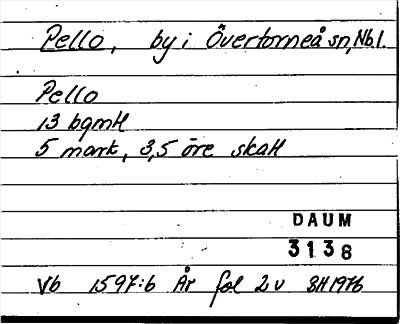 Pello, by i Övertorneå sn, Nb.l.
Pello
13 bgmtl
5 mark, 3,5 öre skatt
DAUM
3138
Vb 1597:6 År fol 2v SH 1976